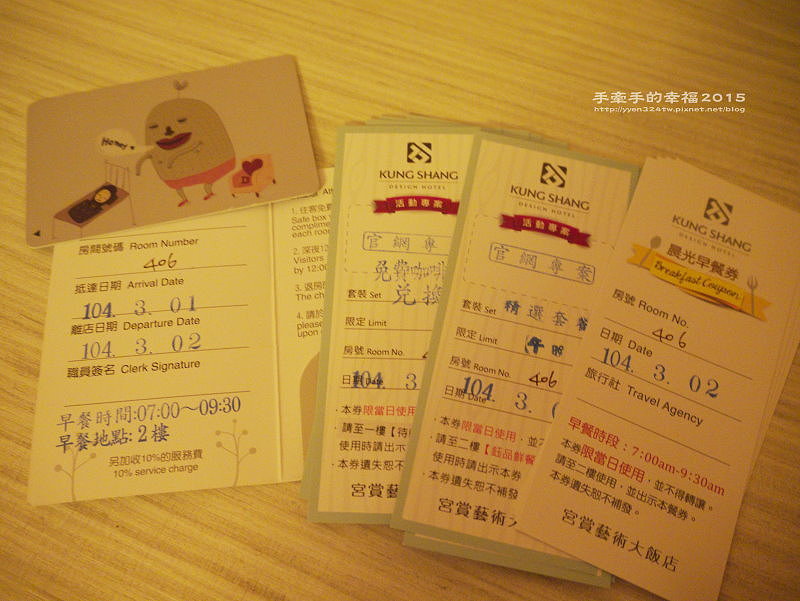 手牽手的幸福2015
http://yyen324tw.pixnet.net/blog
Honey
房間號碼 Room Number
406
抵達日期 Arrival Date
104. 3. 01
離店日期 Departure Date
104. 3. 02
職員簽名 Clerk Signature
早餐時間:07:00~09:30
早餐地點:2樓
另加收10%的服務費
10% service charge
1. 住客免費
Safe box
complime
each room
2. 深夜12
Visitors
by 12:00
3. 退房
The ch
4. 請於
please
upon
KUNG SHANG
DESIGN HOTEL
活動專案
官網專
免費咖啡
套裝 Set 兌換
限定 Limit
房號 Room No.
日期 Date 104. 3
·本券限當日使用
·請至一樓【待
使用時請出示本
·本券遺失恕不補
宮賞藝術
KUNG SHANG
DESIGN HOTEL
活動專案
官網專案
套裝 Set 精選套餐
限定 Limit
房號 Room No. 406
日期 Date 104. 3. 0
·本券限當日使用,並不
·請至二樓【鈺品鮮餐
使用時請出示本券
·本券遺失恕不補發
宮賞藝術大
KUNG SHANG
DESIGN HOTEL
晨光早餐券
Breakfast Coupon
房號 Room No.
406
日期 Date
104. 3. 02
旅行社 Travel Agency
早餐時段:7:00am-9:30am
本券限當日使用,並不得轉讓。
請至二樓使用,並出示本餐券。
本券遺失恕不補發。
宮賞藝術大飯店